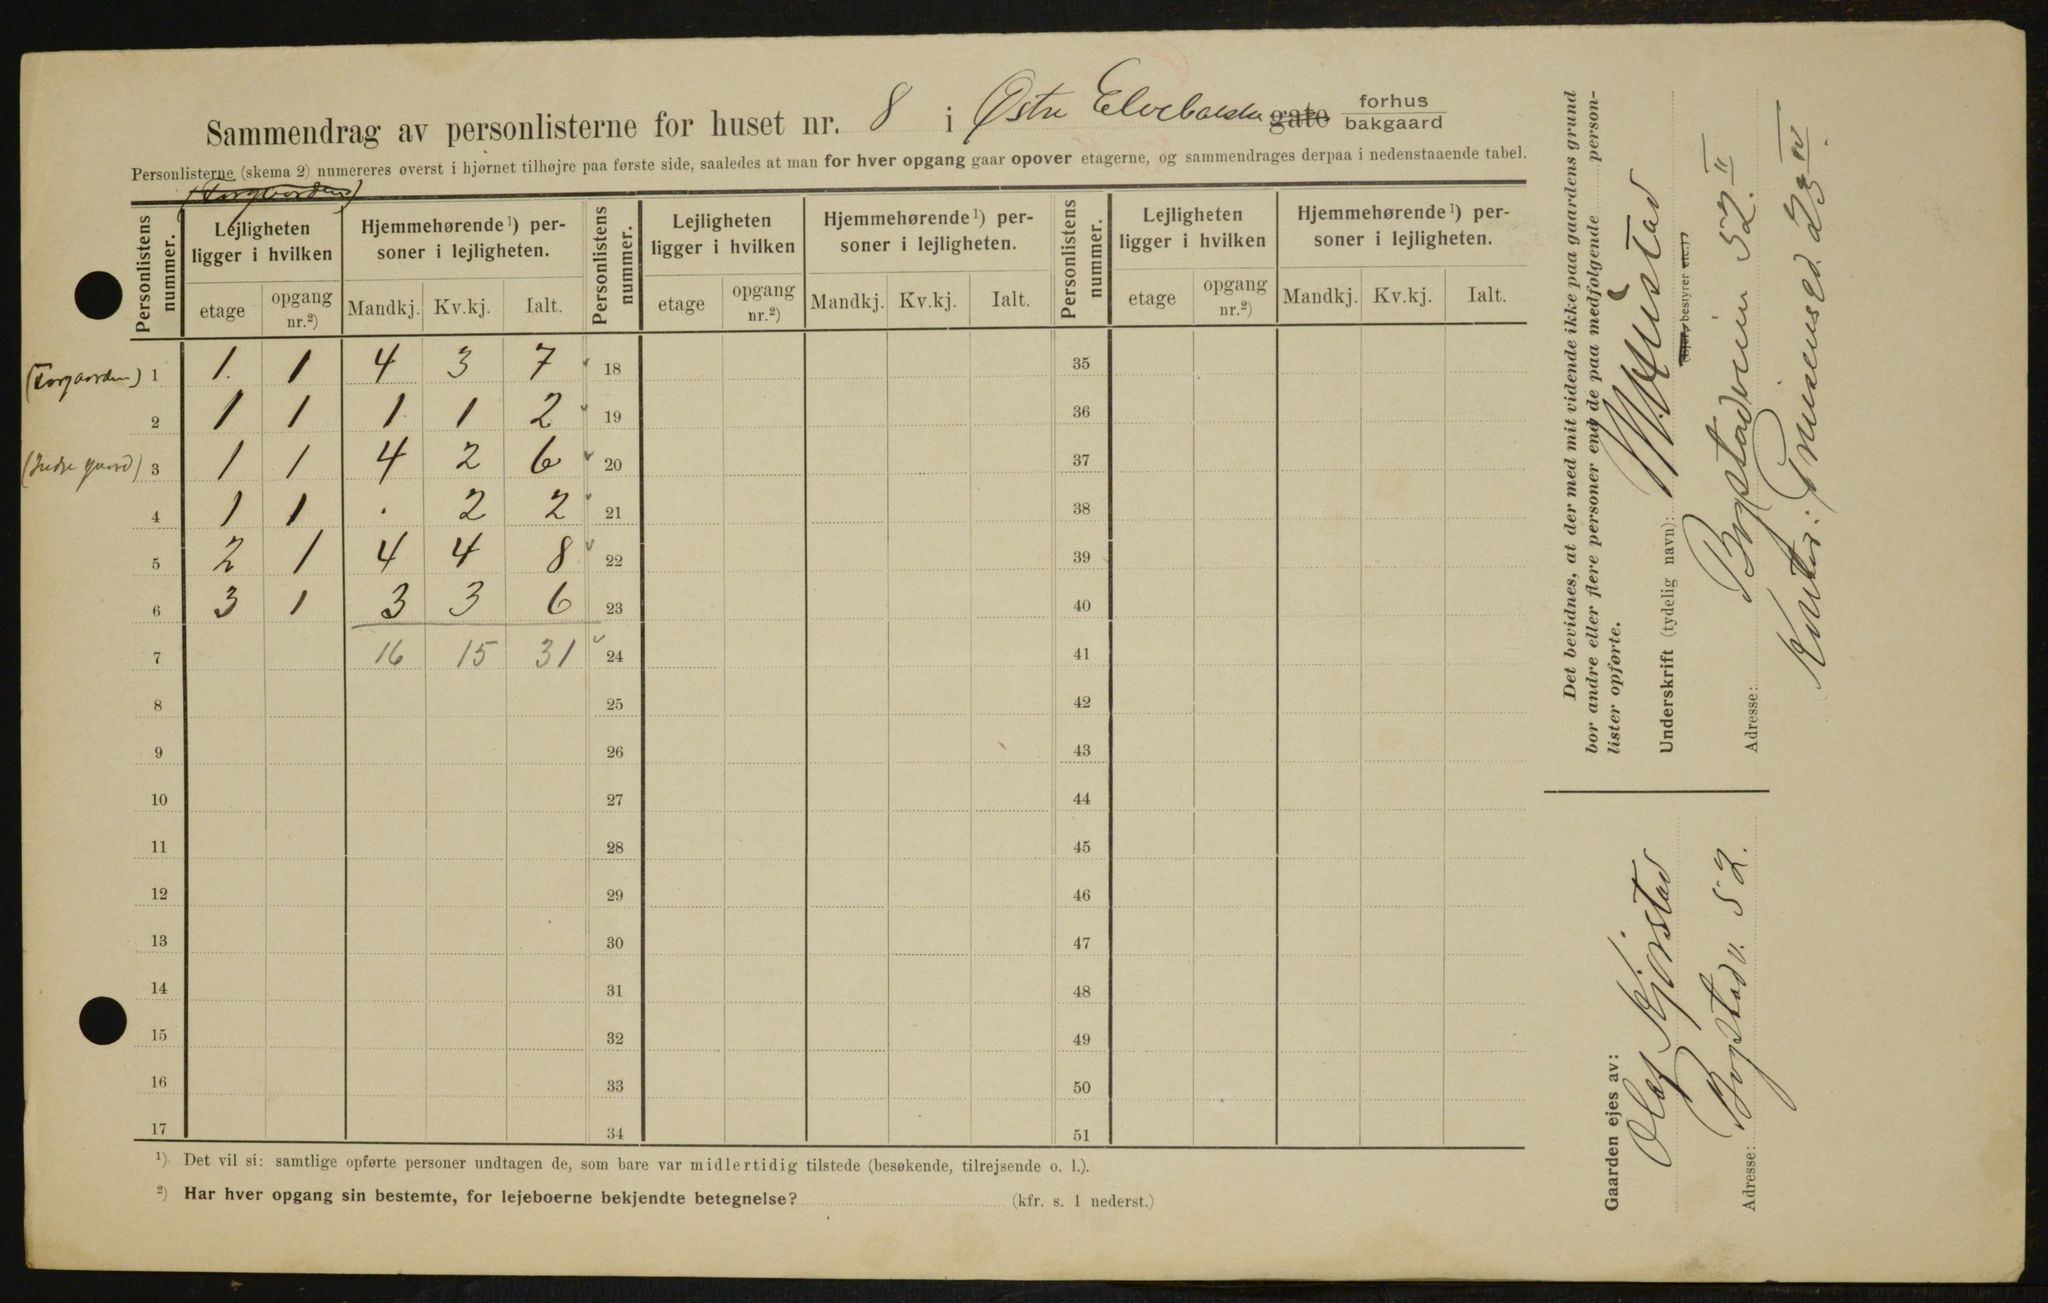 Sammendrag av personlisterne for huset nr. 8 i Østre Elvebakke gate forhus bakgaard
Personlisterne (skema 2) numereres øverst i hjørnet tilhøjre paa første side, saaledes at man for hver opgang gaar opover etagerne, og sammendrages derpaa i nedenstaaende tabel.
(Forgaarden)
Personlistens nummer. Lejligheten ligger i hvilken Hjemmehørende ¹) personer i lejligheten. Personlistens nummer. Lejligheten ligger i hvilken Hjemmehørende ¹) personer i lejligheten. Personlistens nummer. Lejligheten ligger i hvilken Hjemmehørende ¹) personer i lejligheten.
etage opgang nr.²) Mandkj. Kv.kj. Ialt. etage opgang nr.²) Mandkj. Kv.kj. Ialt. etage opgang nr.²) Mandkj. Kv.kj. Ialt.
(Forgaarden) 1 1. 1 4 3 7 18 35
2 1 1 1 1 2 19 36
(Indre gaard) 3 1 1 4 2 6 20 37
4 1 1 . 2 2 21 38
5 2 1 4 4 8 22 39
6 3 1 3 3 6 23 40
7 16 15 31 24 41
8 25 42
9 26 43
10 27 44
11 28 45
12 29 46
13 30 47
14 31 48
15 32 49
16 33 50
17 34 51
¹) Det vil si: samtlige opførte personer undtagen de, som bare var midlertidig tilstede (besøkende, tilrejsende o. l.).
²) Har hver opgang sin bestemte, for lejeboerne bekjendte betegnelse? (kfr. s. 1 nederst.)
Det bevidnes, at der med mit vidende ikke paa gaardens grund
bor andre eller flere personer end de paa medfølgende person-
lister opførte.
Underskrift (tydelig navn):
(Ejer, bestyrer etc.)
Adresse: Bogstadveien 52. II
Kontor: Grænsed. 23 IV
Gaarden ejes av:
Olaf Kjørstad
Adresse: Bogstadv. 52.